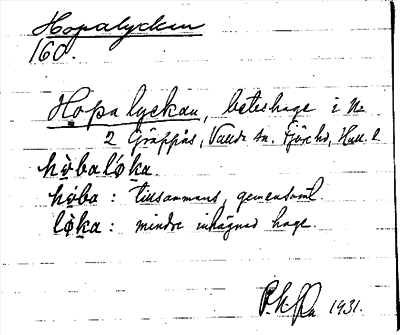 Hopalyckan
160.
Hopalyckan, beteshage i N:
2 Gräppås, Valda sn. Fjäre hd, Hall. l.
hò̱balò̱ka.
hò̱ba: tillsammans, gemensaml.
lò̱ka: mindre inhägnad hage.
1931.